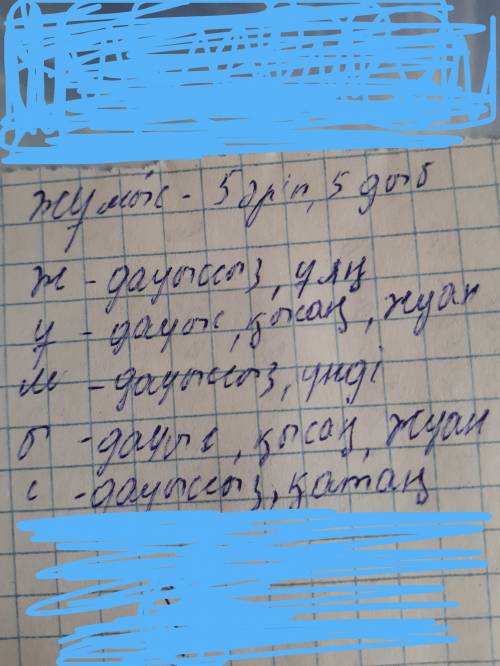 жумыс - 5 әріп, 5 дыб
ж - дауыссыз, ұяң
у - дауыс, қысаң, жуан
м - дауыссыз, үнді
ы - дауыс, қысаң, жуан
с - дауыссыз, қатаң